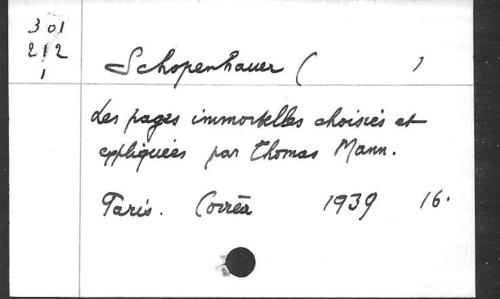 301
212
1
Schopenhauer ( )
Les pages immortelles choisies et
expliquées par Thomas Mann.
Paris. Corrêa 1939 16.